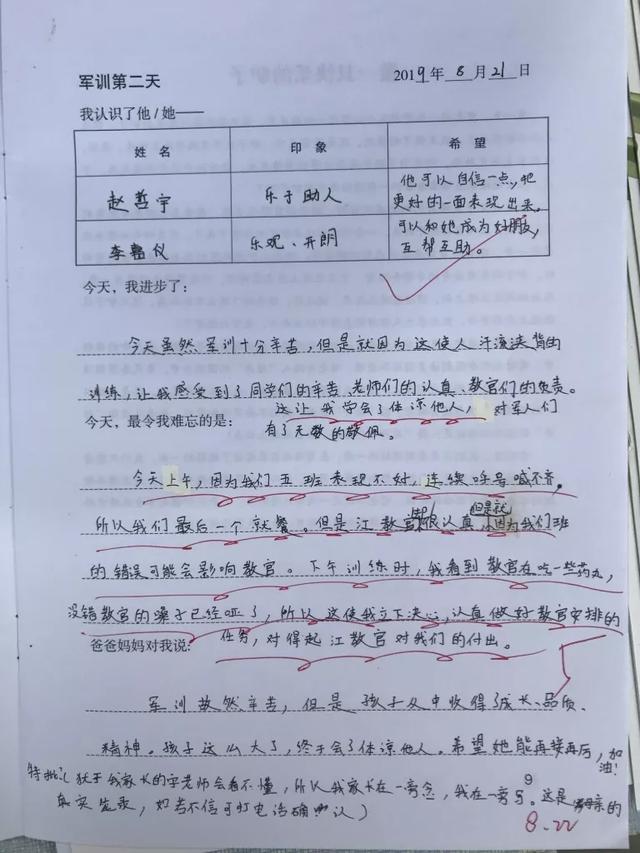 军训第二天
2019年8月21日
我认识了他/她——
姓名 印象 希望
赵哲宇 乐于助人 他可以自信一点，把
更好的一面表现出来。
李 仪 乐观、开朗 可以和她成为好朋友，
互帮互助。
今天，我进步了：
今天虽然军训十分辛苦，但是就因为这使人汗流浃背的
训练，让我感受到了同学们的辛苦、老师们的认真、教官们的负责。
今天，最令我难忘的是：
这让我学会了体凉他人，对军人们
有了无数的敬佩。
今天上午，因为我们五班表现不好，连续呼号喊不齐。
所以我们最后一个就餐。但是江教官很认真，但是就因为我们班
的错误可能会影响教官。下午训练时，我看到教官在吃一些药丸，
没错教官的嗓子已经哑了，所以这使我立下决心，认真做好教官安排的
爸爸妈妈对我说：
任务，对得起江教官对我们的付出。
军训故然辛苦，但是孩子从中收得了成长、品质、
精神。孩子这么大了，终于会了体凉他人。希望她能再接再厉，加油！
特批：（犹于我家长的字老师会看不懂，所以我家长在一旁念，我在一旁写。这是 亲的
真实笔录，如若不信可打电话确认）
8.22